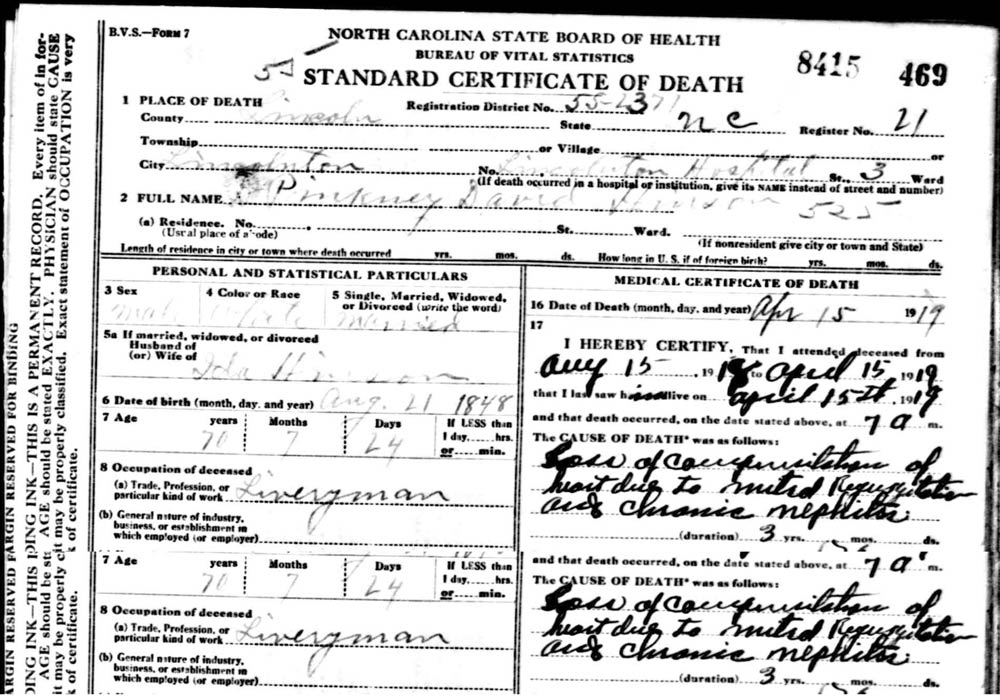 B.V.S.—FORM 7
NORTH CAROLINA STATE BOARD OF HEALTH
BUREAU OF VITAL STATISTICS
8415 469
STANDARD CERTIFICATE OF DEATH
1 PLACE OF DEATH
Registration District No.
County Lincoln State N C Register No. 21
Township or Village or
City Lincolnton No. Lincolnton Hospital St., 3 Ward
(If death occurred in a hospital or institution, give its NAME instead of street and number)
2 FULL NAME Pinkney David Hinson 525
(a) Residence. No. St. Ward.
(Usual place of abode) (If nonresident give city or town and State)
Length of residence in city or town where death occurred yrs. mos. ds. How long in U. S. if of foreign birth? yrs. mos. ds.
PERSONAL AND STATISTICAL PARTICULARS
3 Sex 4 Color or Race 5 Single, Married, Widowed, or Divorced (write the word)
male white married
5a If married, widowed, or divorced
Husband of
(or) Wife of
Ida Hinson
6 Date of birth (month, day, and year) Aug. 21 1848
7 Age years Months Days If LESS than
70 7 24 1 day, hrs.
or min.
8 Occupation of deceased
(a) Trade, Profession, or
particular kind of work Liveryman
(b) General nature of industry,
business, or establishment in
which employed (or employer)
7 Age years Months Days If LESS than
70 7 24 1 day, hrs.
or min.
8 Occupation of deceased
(a) Trade, Profession, or
particular kind of work Liveryman
(b) General nature of industry,
business, or establishment in
which employed (or employer)
MEDICAL CERTIFICATE OF DEATH
16 Date of Death (month, day, and year) Apr 15 1919
17
I HEREBY CERTIFY, That I attended deceased from
Aug 15, 1918 to April 15, 1919
that I last saw him alive on April 15th, 1919
and that death occurred, on the date stated above, at 7 a m.
The CAUSE OF DEATH* was as follows:
Loss of compensation of
heart due to mitral Regurgitation
and chronic nephritis
(duration) 3 yrs. mos. ds.
and that death occurred, on the date stated above, at 7 a m.
The CAUSE OF DEATH* was as follows:
Loss of compensation of
heart due to mitral Regurgitation
and chronic nephritis
(duration) 3 yrs. mos. ds.
ARGIN RESERVED FARGIN RESERVED FOR BINDING
DING INK—THIS IDING INK—THIS IS A PERMANENT RECORD. Every item of infor-
AGE should be stated EXACTLY. PHYSICIAN should state CAUSE
it may be properly classified. Exact statement of OCCUPATION is very
k of certificate.